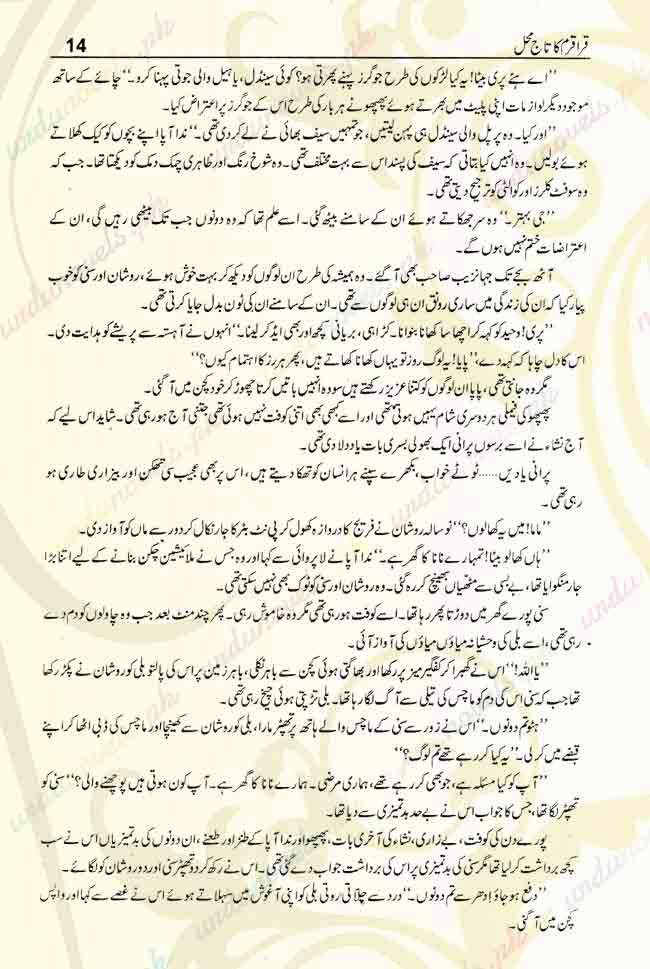 قراقرم کا تاج محل
14
’’اے ہئے پری بیٹا! یہ کیا لڑکوں کی طرح جوگرز پہنے پھرتی ہو؟ کوئی سینڈل، یا ہیل والی جوتی پہنا کرو۔‘‘ چائے کے ساتھ
موجود دیگر لوازمات اپنی پلیٹ میں بھرتے ہوئے پھپھو نے ہر بار کی طرح اس کے جوگرز پر اعتراض کیا۔
’’اور کیا۔ وہ پرپل والی سینڈل ہی پہن لیتیں، جو تمہیں سیف بھائی نے لے کر دی تھی۔‘‘ ندا آپا اپنے بچوں کو کیک کھلاتے
ہوئے بولیں۔ وہ انہیں کیا بتاتی کہ سیف کی پسند اس سے بہت مختلف تھی۔ وہ شوخ رنگ اور ظاہری چمک دمک کو دیکھتا تھا۔ جب کہ
وہ سوفٹ کلرز اور کوالٹی کو ترجیح دیتی تھی۔
’’جی بہتر۔‘‘ وہ سر جھکاتے ہوئے ان کے سامنے بیٹھ گئی۔ اسے علم تھا کہ وہ دونوں جب تک بیٹھی رہیں گی، ان کے
اعتراضات ختم نہیں ہوں گے۔
آٹھ بجے تک جہانزیب صاحب بھی آ گئے۔ وہ ہمیشہ کی طرح ان لوگوں کو دیکھ کر بہت خوش ہوئے، روشان اور سنی کو خوب
پیار کیا کہ ان کی زندگی میں ساری رونق ان ہی لوگوں سے تھی۔ ان کے سامنے ان کی ٹون بدل جایا کرتی تھی۔
’’پری! وحید کو کہہ کر اچھا سا کھانا بنوانا۔ کڑاہی، بریانی کچھ اور بھی ایڈ کر لینا۔‘‘ انہوں نے آہستہ سے پریشے کو ہدایت دی۔
اس کا دل چاہا کہ کہہ دے، ’’پاپا! یہ لوگ روز تو یہاں کھانا کھاتے ہیں، پھر ہر روز کا اہتمام کیوں؟‘‘
مگر وہ جانتی تھی، پاپا ان لوگوں کو کتنا عزیز رکھتے ہیں سو وہ انہیں باتیں کرتا چھوڑ کر خود کچن میں آ گئی۔
پھپھو کی فیملی ہر دوسری شام یہیں ہوتی تھی اور اسے کبھی بھی اتنی کوفت نہیں ہوئی تھی جتنی آج ہو رہی تھی۔ شاید اس لیے کہ
آج نشاء نے اسے برسوں پرانی ایک بھولی بسری بات یاد دلا دی تھی۔
پرانی یادیں...... ٹوٹے خواب، بکھرے سپنے ہر انسان کو تھکا دیتے ہیں، اس پر بھی عجیب سی تھکن اور بیزاری طاری ہو
رہی تھی۔
’’ماما! میں یہ کھالوں؟‘‘ نو سالہ روشان نے فریج کا دروازہ کھول کر پی نٹ بٹر کا جار نکال کر دور سے ماں کو آواز دی۔
’’ہاں کھا لو بیٹا! تمہارے نانا کا گھر ہے۔‘‘ ندا آپا نے لا پروائی سے کہا اور وہ جس نے ملائیشین چکن بنانے کے لیے اتنا بڑا
جار منگوایا تھا، بے بسی سے مٹھیاں بھینچ کر رہ گئی۔ وہ روشان اور سنی کو ٹوک بھی نہیں سکتی تھی۔
سنی پورے گھر میں دوڑتا پھر رہا تھا۔ اسے کوفت ہو رہی تھی مگر وہ خاموش رہی۔ پھر چند منٹ بعد جب وہ چاولوں کو دم دے
رہی تھی، اسے بلی کی وحشیانہ میاؤں میاؤں کی آواز آئی۔
’’یا اللہ!‘‘ اس نے گھبرا کر کفگیر میز پر رکھا اور بھاگتی ہوئی کچن سے باہر نکلی، باہر زمین پر اس کی پالتو بلی کو روشان نے پکڑ رکھا
تھا جب کہ سنی اس کی دم کو ماچس کی تیلی سے آگ لگا رہا تھا۔ بلی تڑپتی ہوئی چیخ رہی تھی۔
’’ہٹو تم دونوں۔‘‘ اس نے زور سے سنی کے ماچس والے ہاتھ پر تھپڑ مارا، بلی کو روشان سے کھینچا اور ماچس کی ڈبی اٹھا کر اپنے
قبضے میں کر لی۔ ’’یہ کیا کر رہے تھے تم لوگ؟‘‘
’’آپ کو کیا مسئلہ ہے، جو بھی کر رہے تھے، ہماری مرضی۔ ہمارے نانا کا گھر ہے۔ آپ کون ہوتی ہیں پوچھنے والی؟‘‘ سنی کو
تھپڑ لگا تھا، جس کا جواب اس نے بے حد بدتمیزی سے دیا تھا۔
پورے دن کی کوفت، بے زاری، نشاء کی آخری بات، پھپھو اور ندا آپا کے طنز اور طعنے، ان دونوں کی بدتمیزیاں اس نے سب
کچھ برداشت کر لیا تھا مگر سنی کی بدتمیزی پر اس کی برداشت جواب دے گئی تھی۔ اس نے رکھ کر دو تھپڑ سنی اور دو روشان کو لگائے۔
’’دفع ہو جاؤ ادھر سے تم دونوں۔‘‘ درد سے چلاتی روتی بلی کو اپنی آغوش میں سہلاتے ہوئے اس نے غصے سے کہا اور واپس
کچن میں آ گئی۔